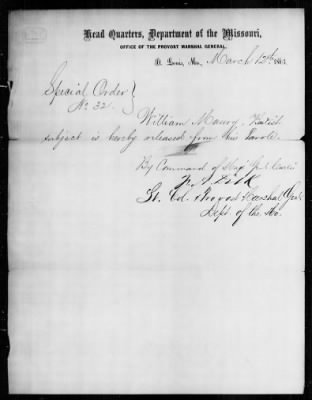 Head Quarters, Department of the Missouri,
OFFICE OF THE PROVOST MARSHAL GENERAL,
St. Louis, Mo., March 12th 1863
Special Order }
No. 32.
William Maury, British
subject is hereby released from his Parole.
By Command of Maj Genl Curtis
F. A. Dick
Lt. Col. & Provost Marshal Genl
Dept. of the Mo.